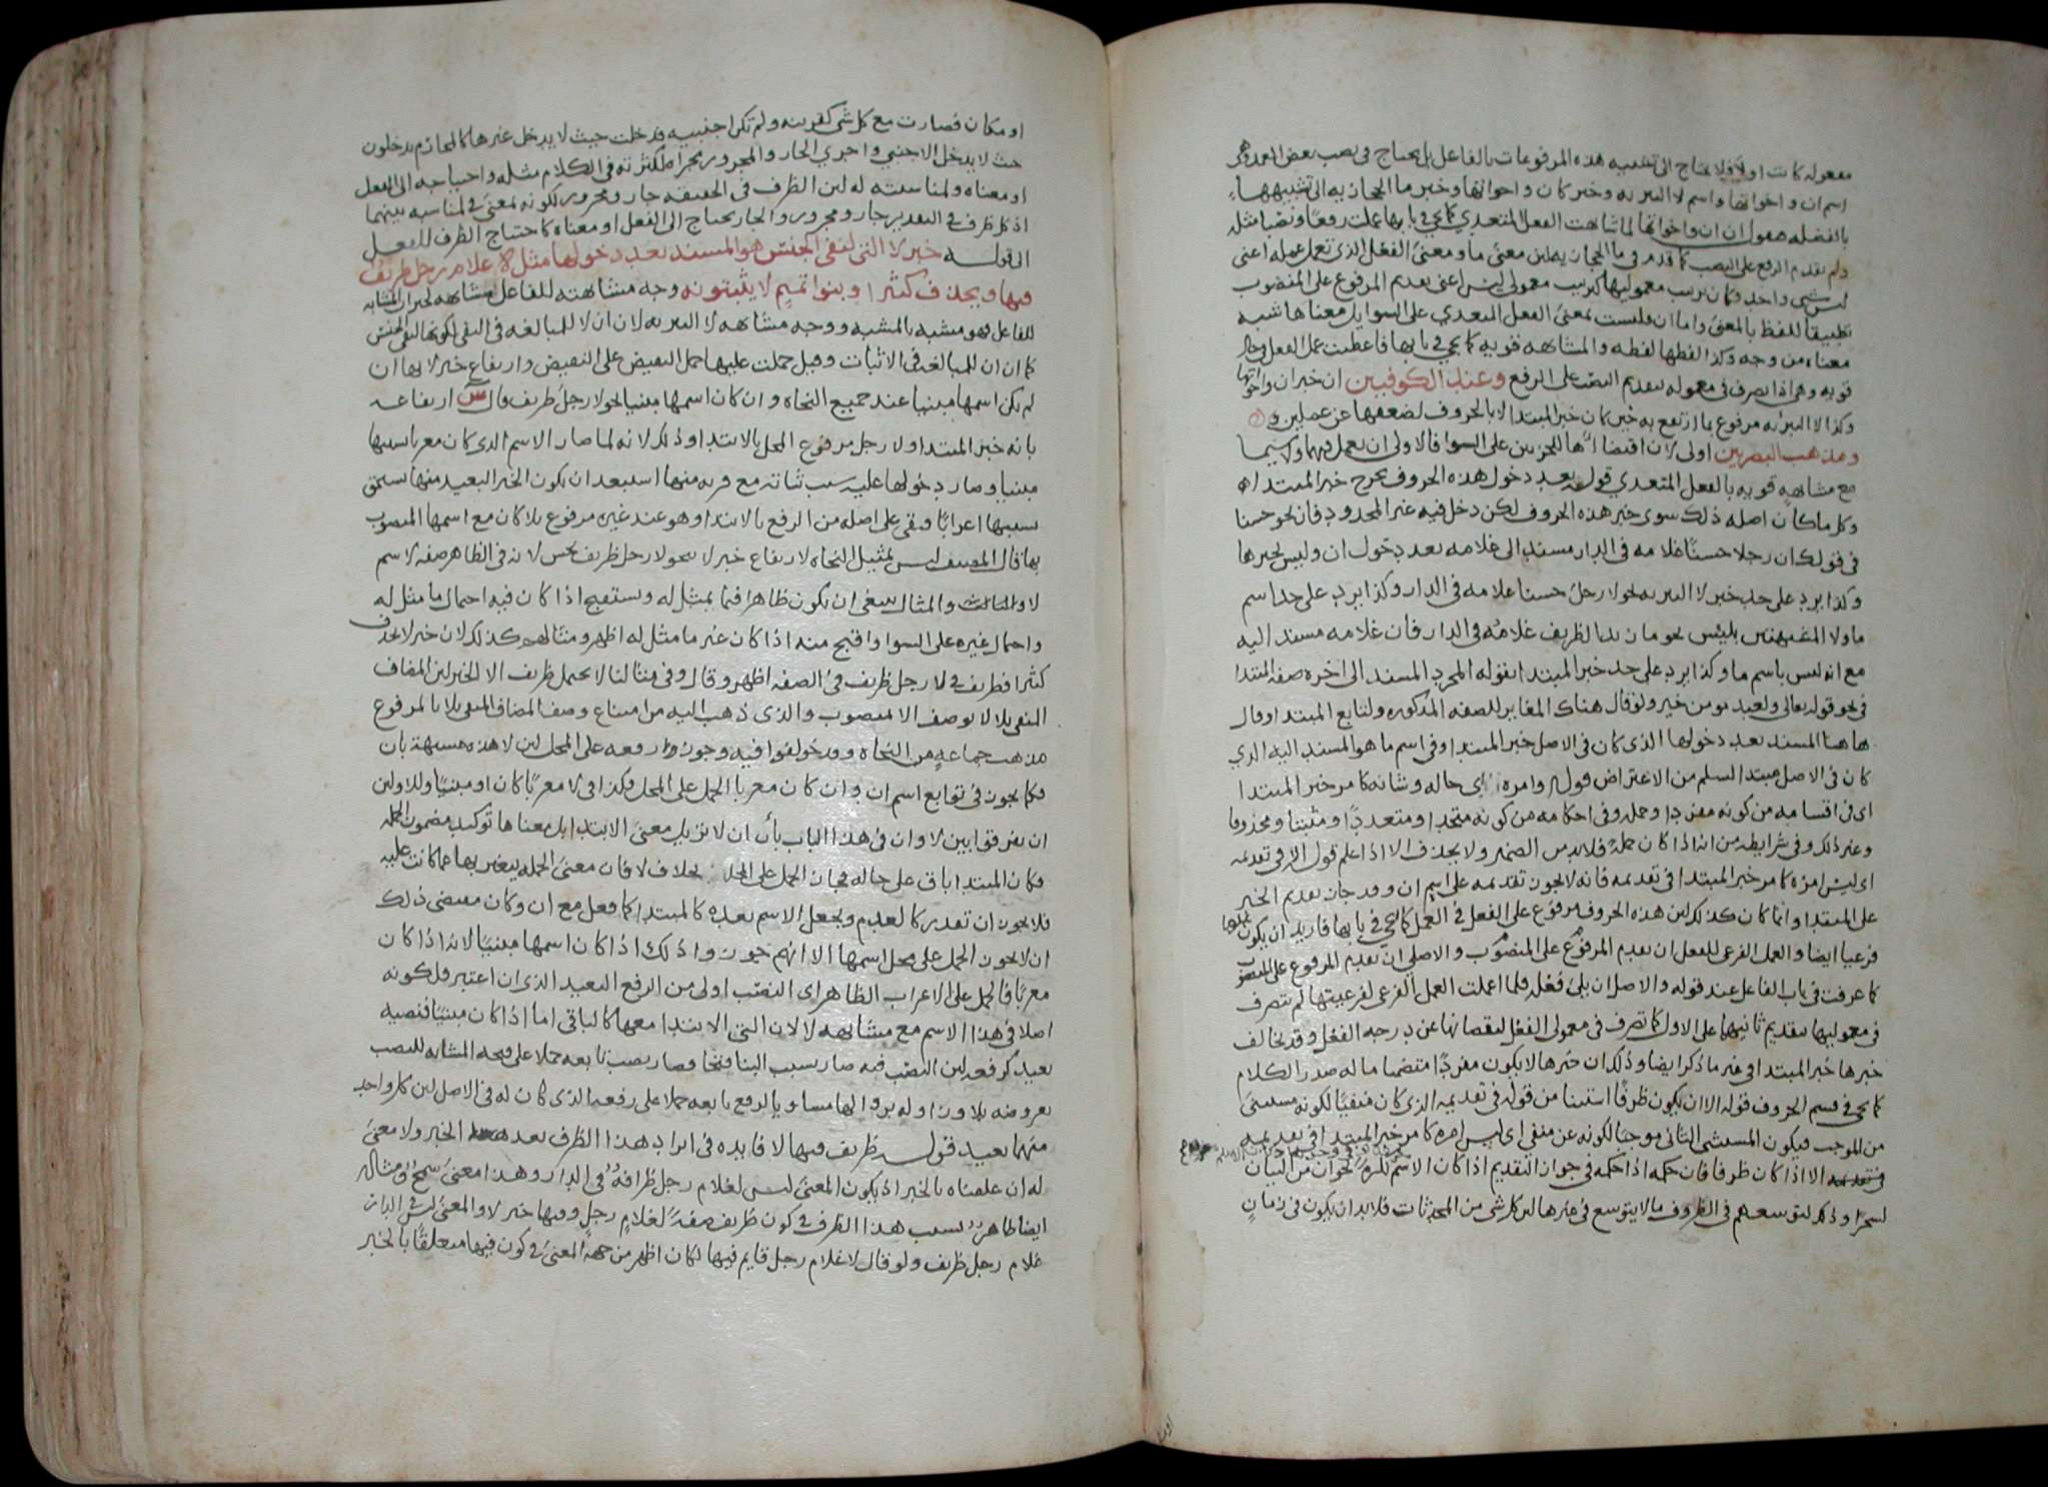 مفعوله كانت اولا فلا يحتاج الى تشبيه هذه المرفوعات بالفاعل بل يحتاج فى نصب بعض العمد وهو
اسم ان واخواتها واسم لا التبريه وخبر كان واخواتها وخبر ما الحجازيه الى تشبيهها
بالفضله فنقول ان ان واخواتها لما شابهت الفعل المتعدي كما يجي في بابها عملت رفعا ونصبا مثله
ولم يقدم الرفع على النصب كما قدم في ما الحجازيه لان معنى ما ومعنى الفعل الذي تعمل عمله اعنى
ليس شى واحد فكان ترتيب معموليها كترتيب معمولى ليس اعنى تقديم المرفوع على المنصوب
تطبيقا للفظ بالمعنى واما ان فليست بمعنى الفعل المتعدي على السوا بل معناها شبه
معناه من وجه وكذا لفظها لفظه والمشابهه قويه كما يجي في بابها فاعطيت عمل الفعل
قويه وهى اذا تصرف في معموله بتقديم النصب على الرفع وعند الكوفيين ان خبر ان واخواتها
وكذا لا التبريه مرفوع بما ارتفع به حين كان خبر المبتدا لا بالحروف لضعفها عن عملين
ومذهب البصريين اولى لان اقتضاءها للجزئين على السوا فالاولى ان تعمل فيهما ولا سيما
مع مشابهه قويه بالفعل المتعدي قوله بعد دخول هذه الحروف يخرج خبر المبتدا
وكل ما كان اصله ذلك سوى خبر هذه الحروف لكن دخل فيه غير المحدود فان نحو حسنا
فى قولك ان رجلا حسنا غلامه فى الدار مسند الى غلامه بعد دخول ان وليس بخبرها
وكذا يرد على حد خبر لا التبريه نحو لا رجل حسنا غلامه فى الدار وكذا يرد على حد اسم
ما ولا المشبهتين بليس نحو ما زيد الظريف غلامه فى الدار فان غلامه مسند اليه
مع انه ليس باسم ما وكذا يرد على حد خبر المبتدا بقوله المجرد المسند الى اخره صفه المبتدا
فى نحو قوله تعالى ولعبد مومن خير ولو قال هناك المغاير للصفه المذكوره ولتابع المبتدا وقال
هاهنا المسند بعد دخولها الذى كان فى الاصل خبر المبتدا وفى اسم ما هو المسند اليه الذي
كان فى الاصل مبتدا لسلم من الاعتراض قوله وامره اى حاله وشانه كامر خبر المبتدا
اى فى اقسامه من كونه مفردا وجمله وفى احكامه من كونه متحدا ومتعددا ومثبتا ومحذوفا
وغير ذلك وفى شرايطه من انه اذا كان جمله فلابد من الضمير ولا يحذف الا اذا علم قوله الا فى تقديمه
اى ليس امره كامر خبر المبتدا فى تقديمه فانه لا يجوز تقديمه على اسم ان وقد جاز تقديم الخبر
على المبتدا وانما كان كذلك لان هذه الحروف مرفوع على الفعل فى العمل كما يجي فى بابها فاريد ان يكون عملها
فرعيا ايضا والعمل الفرعى للفعل ان تقديم المرفوع على المنصوب والاصلى ان تقديم المرفوع على المنصوب
كما عرفت فى باب الفاعل عند قوله والاصل ان يلى فعله فلما اعملت العمل الفرعى لفرعيتها لم يتصرف
فى معموليها بتقديم ثانيهما على الاول كما تصرف فى معمولى الفعل لنقصانها عن درجه الفعل وقد تخالف
خبرها خبر المبتدا فى غير ما ذكر ايضا وذلك ان خبرها لا يكون مفردا متضمنا ما له صدر الكلام
كما يجى فى قسم الحروف قوله الا ان يكون ظرفا استثنا من قوله فى تقديمه الذى كان منفيا لكونه مستثنى
من الموجب فيكون المستثنى الثانى موجبا لكونه عن منفى اى ليس امره كامر خبر المبتدا فى تقديمه
الا اذا كان ظرفا فان حكمه اذا حكمه فى جواز التقديم اذا كان الاسم معرفه نحو ان من البيان
لسحرا وذلك لتوسعهم فى الظروف ما لا يتوسع فى غيرها لان كل شى من المحدثات فلابد ان يكون فى زمان
او مكان فصارت مع كل شى كقريبه ولم تكن اجنبيه فدخلت حيث لا يدخل غيرها كالمحارم يدخلون
حيث لا يدخل الاجنبي واجري الجار والمجرور مجراه لكثرته فى الكلام مثله واحتياجه الى الفعل
او معناه ولمناسبته له لان الظرف فى الحقيقه جار ومجرور لكونه بمعنى فى لمناسبه بينهما
اذ كل ظرف فى التقدير جار ومجرور والجار يحتاج الى الفعل او معناه كاحتياج الظرف للفعل
قوله خبر لا التى لنفى الجنس هو المسند بعد دخولها مثل لا غلام رجل ظريف
فيها ويحذف كثيرا وبنوا تميم لا يثبتونه وجه مشابهته للفاعل مشابهه لخبر ان المشابه
للفاعل فهو مشبه بالمشبه ووجه مشابهه لا التبريه لان ان لا للمبالغه فى النفى لكونها لنفى الجنس
كما ان ان للمبالغه فى الاثبات وقيل حملت عليها حمل النقيض على النقيض وارتفاع خبر لا بها ان
لم يكن اسمها مبنيا عند جميع النحاه وان كان اسمها مبنيا نحو لا رجل ظريف قال س ارتفاعه
بانه خبر المبتدا ولا رجل مرفوع المحل بالابتدا وذلك لانه لما صار الاسم الذى كان معربا بسببها
مبنيا وصار دخولها عليه سبب بنائه مع قربه منها استبعد ان يكون الخبر البعيد منها يستحق
بسببها اعرابا فبقى على اصله من الرفع بالابتدا وهو عند غيره مرفوع بلا كان مع اسمها المنصوب
بها قال المصنف ليس تمثيل النحاه لارتفاع خبر لا بنحو لا رجل ظريف بحسن لانه فى الظاهر صفه لاسم
لا والمثال ينبغى ان يكون ظاهرا فيما يمثل له ويستقبح اذا كان فيه احتمال ما مثل له
واحتمال غيره على السوا واقبح منه اذا كان غير ما مثل له اظهر ومثالهم كذلك لان خبر لا يحذف
كثيرا فظريف فى لا رجل ظريف فى الصفه اظهر وقال وفى مثالنا لا يحتمل ظريف الا الخبر لان المضاف
المنفى بلا لا يوصف الا بمنصوب والذى ذهب اليه من امتناع وصف المضاف المنفى بلا بالمرفوع
مذهب جماعه من النحاه وقد خولفوا فيه وجوزوا رفعه على المحل لان لا هذه مشبهه بان
فكما يجوز فى توابع اسم ان وان كان معربا الحمل على المحل فكذا فى لا معربا كان او مبنيا وللاولين
ان يفرقوا بين لا وان فى هذا الباب بان ان لا تزيل معنى الابتدا بل معناها توكيد مضمون الجمله
فكان المبتدا باق على حاله فجاز الحمل على المحل بخلاف لا فان معنى الجمله يتغير بها عما كانت عليه
فلا يجوز ان تقدر كالعدم ويجعل الاسم بعده كالمبتدا كما فعل مع ان وكان مقتضى ذلك
ان لا يجوز الحمل على محل اسمها الا انهم جوزوا ذلك اذا كان اسمها مبنيا لانه اذا كان
معربا فالحمل على الاعراب الظاهر اى النصب اولى من الرفع البعيد الذى ان اعتبر فلكونه
اصلا فى هذا الاسم مع مشابهه لا لان التى الابتدا معها كالباقى اما اذا كان مبنيا فنصبه
بعيد كرفعه لان النصب فيه صار بسبب البنا فتحا وصار نصب تابعه حملا على فتحه المشابه للنصب
بعروضه بلا وزواله بزوالها مساويا لرفع تابعه حملا على رفعه الذى كان له فى الاصل لان كل واحد
منهما بعيد قوله ظريف فيها لا فايده فى ايراد هذا الظرف بعد الخبر ولا معنى
له ان علقناه بالخبر اذ يكون المعنى ليس لغلام رجل ظرافه فى الدار وهذا معنى سمج ومثاله
ايضا ظاهر بسبب هذا الظرف فى كون ظريف صفه لغلام رجل وفيها خبر لا والمعنى ليس فى الدار
غلام رجل ظريف ولو قال لا غلام رجل قايم فيها لكان اظهر من جهه المعنى فى كون فيها متعلقا بالخبر